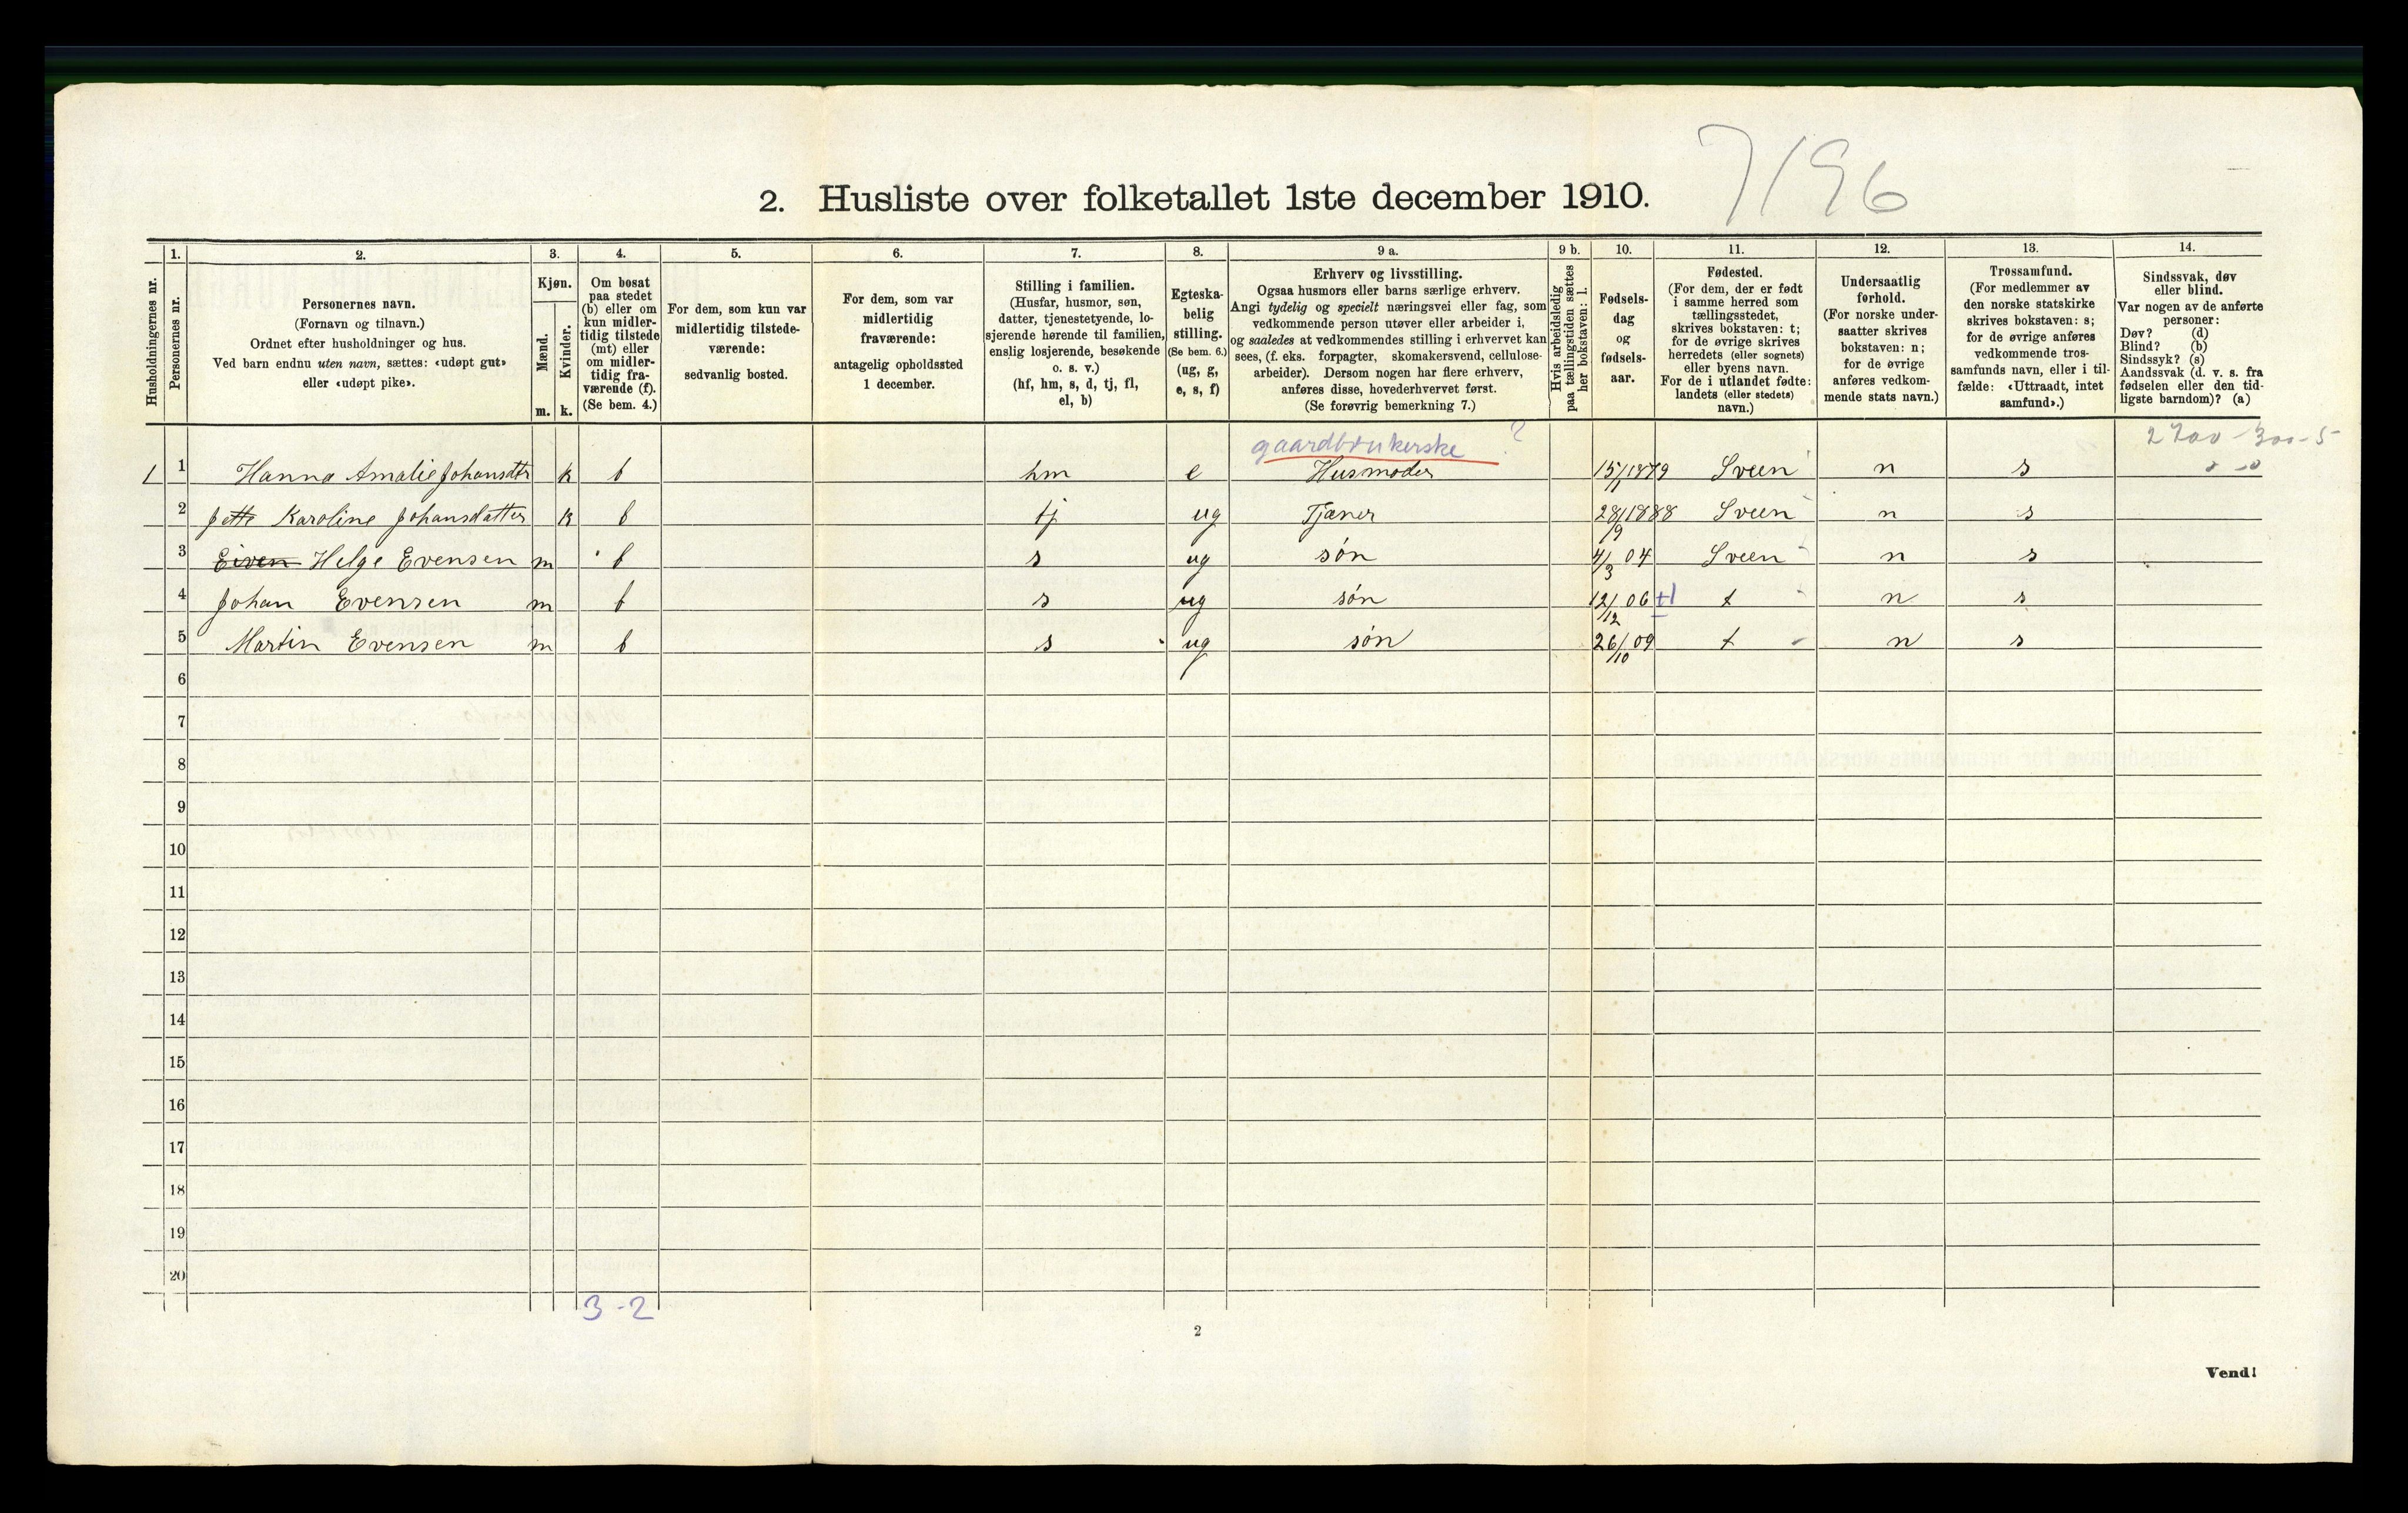 7196
2. Husliste over folketallet 1ste december 1910.
Husholdningernes nr.
1.
Personernes nr.
2.
Personernes navn.
(Fornavn og tilnavn.)
Ordnet efter husholdninger og hus.
Ved barn endnu uten navn, sættes: «udøpt gut»
eller «udøpt pike».
3.
Kjøn.
Mænd.
Kvinder.
m.
k.
4.
Om bosat
paa stedet
(b) eller om
kun midler-
tidig tilstede
(mt) eller
om midler-
tidig fra-
værende (f).
(Se bem. 4.)
5.
For dem, som kun var
midlertidig tilstede-
værende:
sedvanlig bosted.
6.
For dem, som var
midlertidig
fraværende:
antagelig opholdssted
1 december.
7.
Stilling i familien.
(Husfar, husmor, søn,
datter, tjenestetyende, lo-
sjerende hørende til familien,
enslig losjerende, besøkende
o. s. v.)
(hf, hm, s, d, tj, fl,
el, b)
8.
Egteska-
belig
stilling.
(Se bem. 6.)
(ug, g,
e, s, f)
9 a.
Erhverv og livsstilling.
Ogsaa husmors eller barns særlige erhverv.
Angi tydelig og specielt næringsvei eller fag, som
vedkommende person utøver eller arbeider i,
og saaledes at vedkommendes stilling i erhvervet kan
sees, (f. eks. forpagter, skomakersvend, cellulose-
arbeider). Dersom nogen har flere erhverv,
anføres disse, hovederhvervet først.
(Se forøvrig bemerkning 7.)
9 b.
Hvis arbeidsledig
paa tællingstiden sættes
her bokstaven: l.
10.
Fødsels-
dag
og
fødsels-
aar.
11.
Fødested.
(For dem, der er født
i samme herred som
tællingsstedet,
skrives bokstaven: t;
for de øvrige skrives
herredets (eller sognets)
eller byens navn.
For de i utlandet fødte:
landets (eller stedets)
navn.)
12.
Undersaatlig
forhold.
(For norske under-
saatter skrives
bokstaven: n;
for de øvrige
anføres vedkom-
mende stats navn.)
13.
Trossamfund.
(For medlemmer av
den norske statskirke
skrives bokstaven: s;
for de øvrige anføres
vedkommende tros-
samfunds navn, eller i til-
fælde: «Uttraadt, intet
samfund».)
14.
Sindssvak, døv
eller blind.
Var nogen av de anførte
personer:
Døv? (d)
Blind? (b)
Sindssyk? (s)
Aandssvak (d. v. s. fra
fødselen eller den tid-
ligste barndom)? (a)
gaardbrukerske ? 2700-300-5
1 1 Hanna Amalie Johansdtr k b hm e Husmoder 15/1 1879 Sveen n s
2 Jette Karoline Johansdatter k b tj ug Tjæner 28/9 1888 Sveen n s
3 Eiven Helge Evensen m b s ug søn 4/3 04 Sveen n s
4 Johan Evensen m b s ug søn 12/12 06 t n s
5 Martin Evensen m b s ug søn 26/10 09 t n s
6
7
8
9
10
11
12
13
14
15
16
17
18
19
20
3-2
2
Vend!